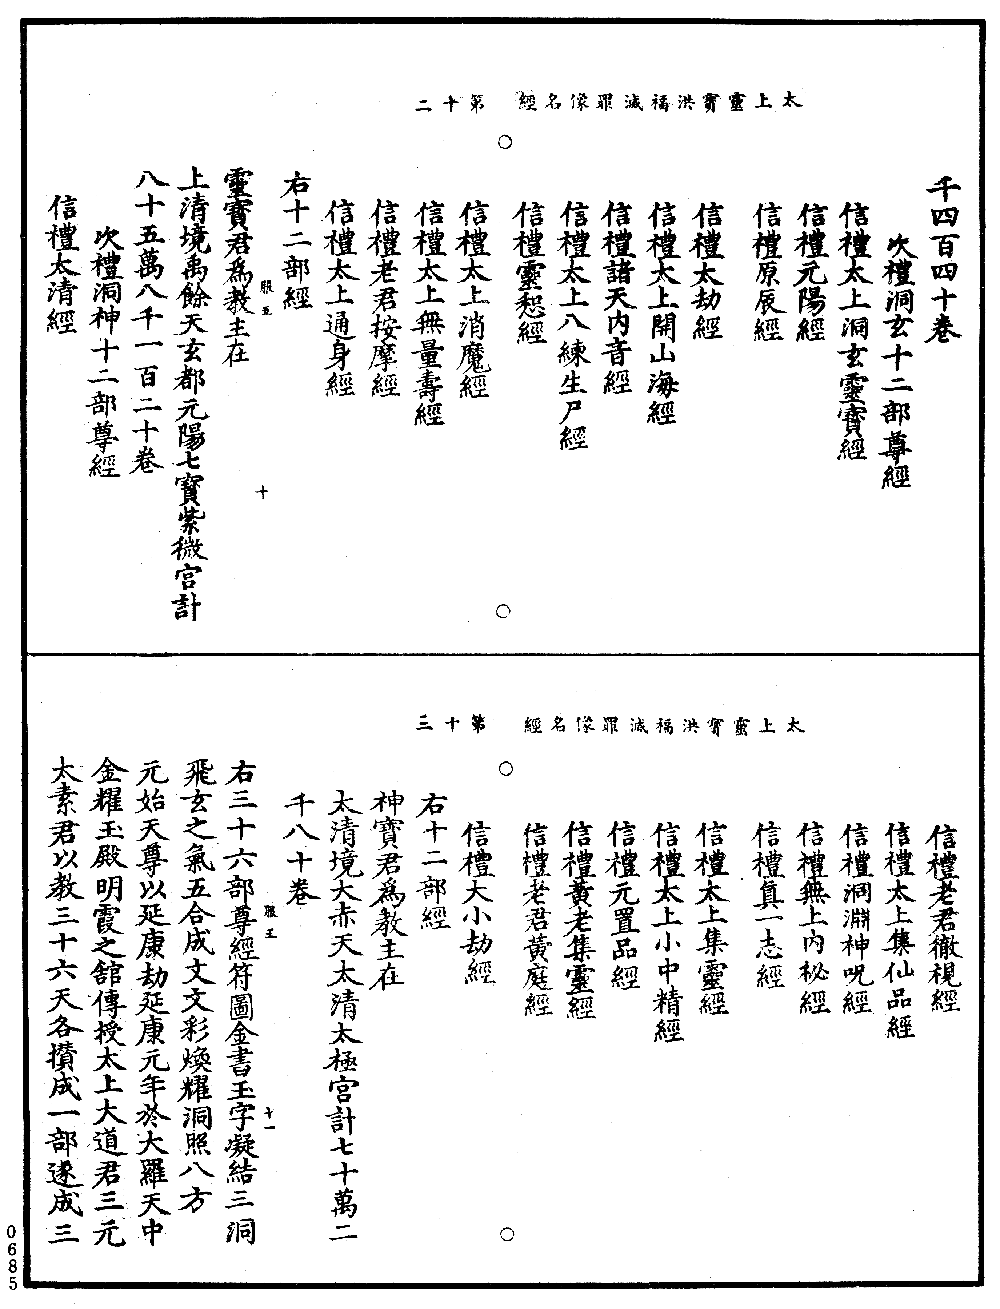 太上靈寳洪福滅罪像名經　第十二
千四百四十卷
次禮洞玄十二部尊經
信禮太上洞玄靈寳經
信禮元陽經
信禮原辰經
信禮太劫經
信禮太上開山海經
信禮諸天内音經
信禮太上八練生尸經
信禮靈恕經
信禮太上消魔經
信禮太上無量壽經
信禮老君按摩經
信禮太上通身經
右十二部經
靈寳君為教主在
服五
十
上清境禹餘天玄都元陽七寳紫微宫計
八十五萬八千一百二十卷
次禮洞神十二部尊經
信禮太清經
太上靈寳洪福滅罪像名經　第十三
信禮老君徹視經
信禮太上集仙品經
信禮洞淵神呪經
信禮無上内秘經
信禮真一志經
信禮太上集靈經
信禮太上小中精經
信禮元置品經
信禮黄老集靈經
信禮老君黄庭經
信禮大小劫經
右十二部經
神寳君為教主在
太清境大赤天太清太極宫計七十萬二
千八十卷
服五
十一
右三十六部尊經符圖金書玉字凝結三洞
飛玄之氣五合成文文彩煥耀洞照八方
元始天尊以延康劫延康元年於大羅天中
金耀玉殿明霞之舘傳授太上大道君三元
太素君以教三十六天各攢成一部遂成三
0685